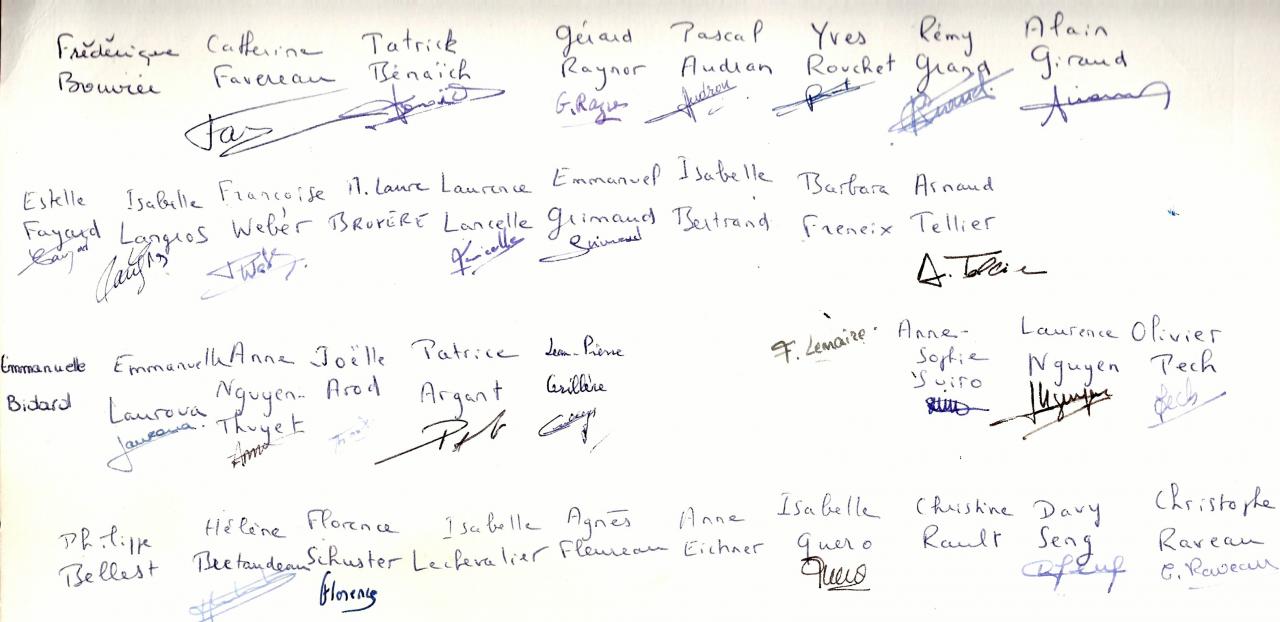 Frédérique Catherine Patrick Gérard Pascal Yves Rémy Alain
Bouvier Favereau Bénaïch Raynor Audran Rouchet Grand Giraud
Fa G. Ray Audran Giraud
Estelle Isabelle Françoise M. Laure Laurence Emmanuel Isabelle Barbara Arnaud
Fayard Langlos Weber BRUYÈRE Lancelle Grimaud Bertrand Freneix Tellier
Fayard Lancelle Grimaud A. Tellier
Emmanuelle Emmanuelle Anne Joëlle Patrice Jean-Pierre F. Lemaire Anne- Laurence Olivier
Bidard Laurova Nguyen- Arod Argant Sophie Nguyen Pech
Laurova Thuyet Suiro Nguyen Pech
Anne
Philippe Hélène Florence Isabelle Agnès Anne Isabelle Christine Davy Christophe
Bellest Bertandeau Schuster Lechevalier Fleureau Eichner Quero Rault Seng Raveau
Florence Quero C. Raveau